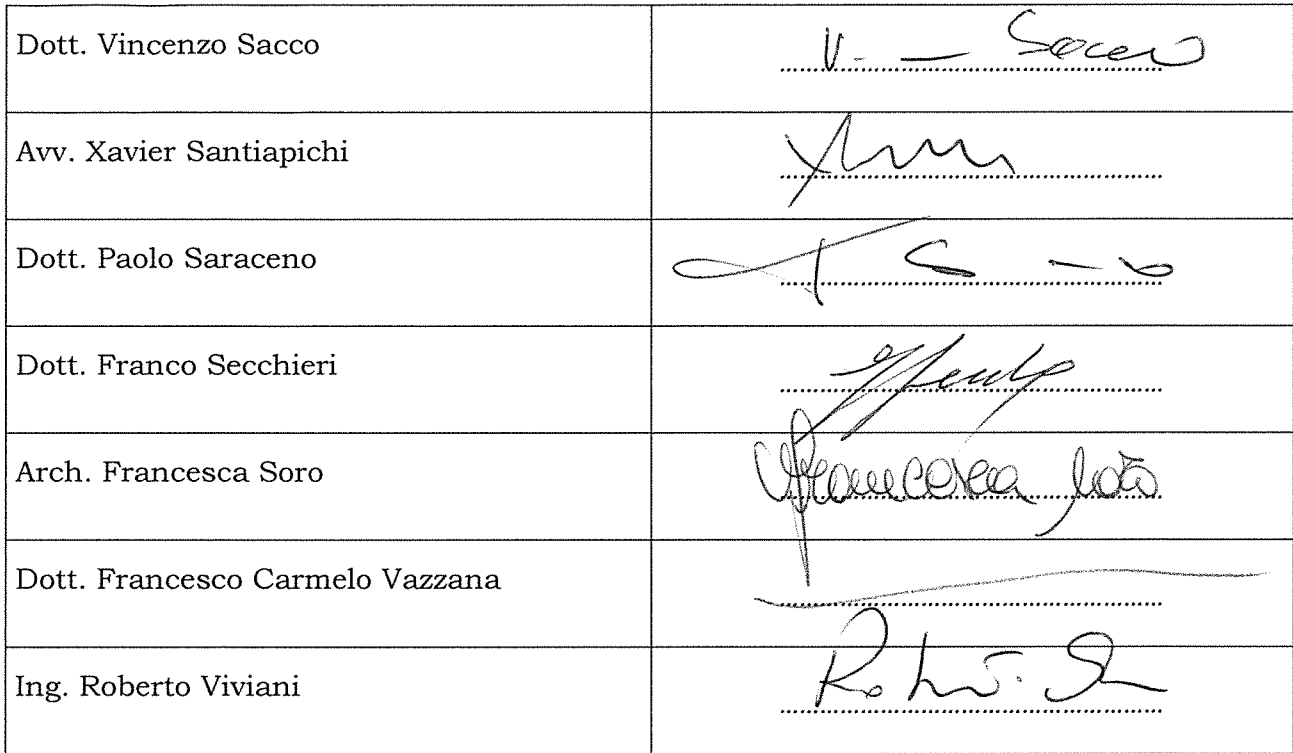 Dott. Vincenzo Sacco
V. Sacco
Avv. Xavier Santiapichi
Dott. Paolo Saraceno
Dott. Franco Secchieri
Arch. Francesca Soro
Francesca Soro
Dott. Francesco Carmelo Vazzana
Ing. Roberto Viviani